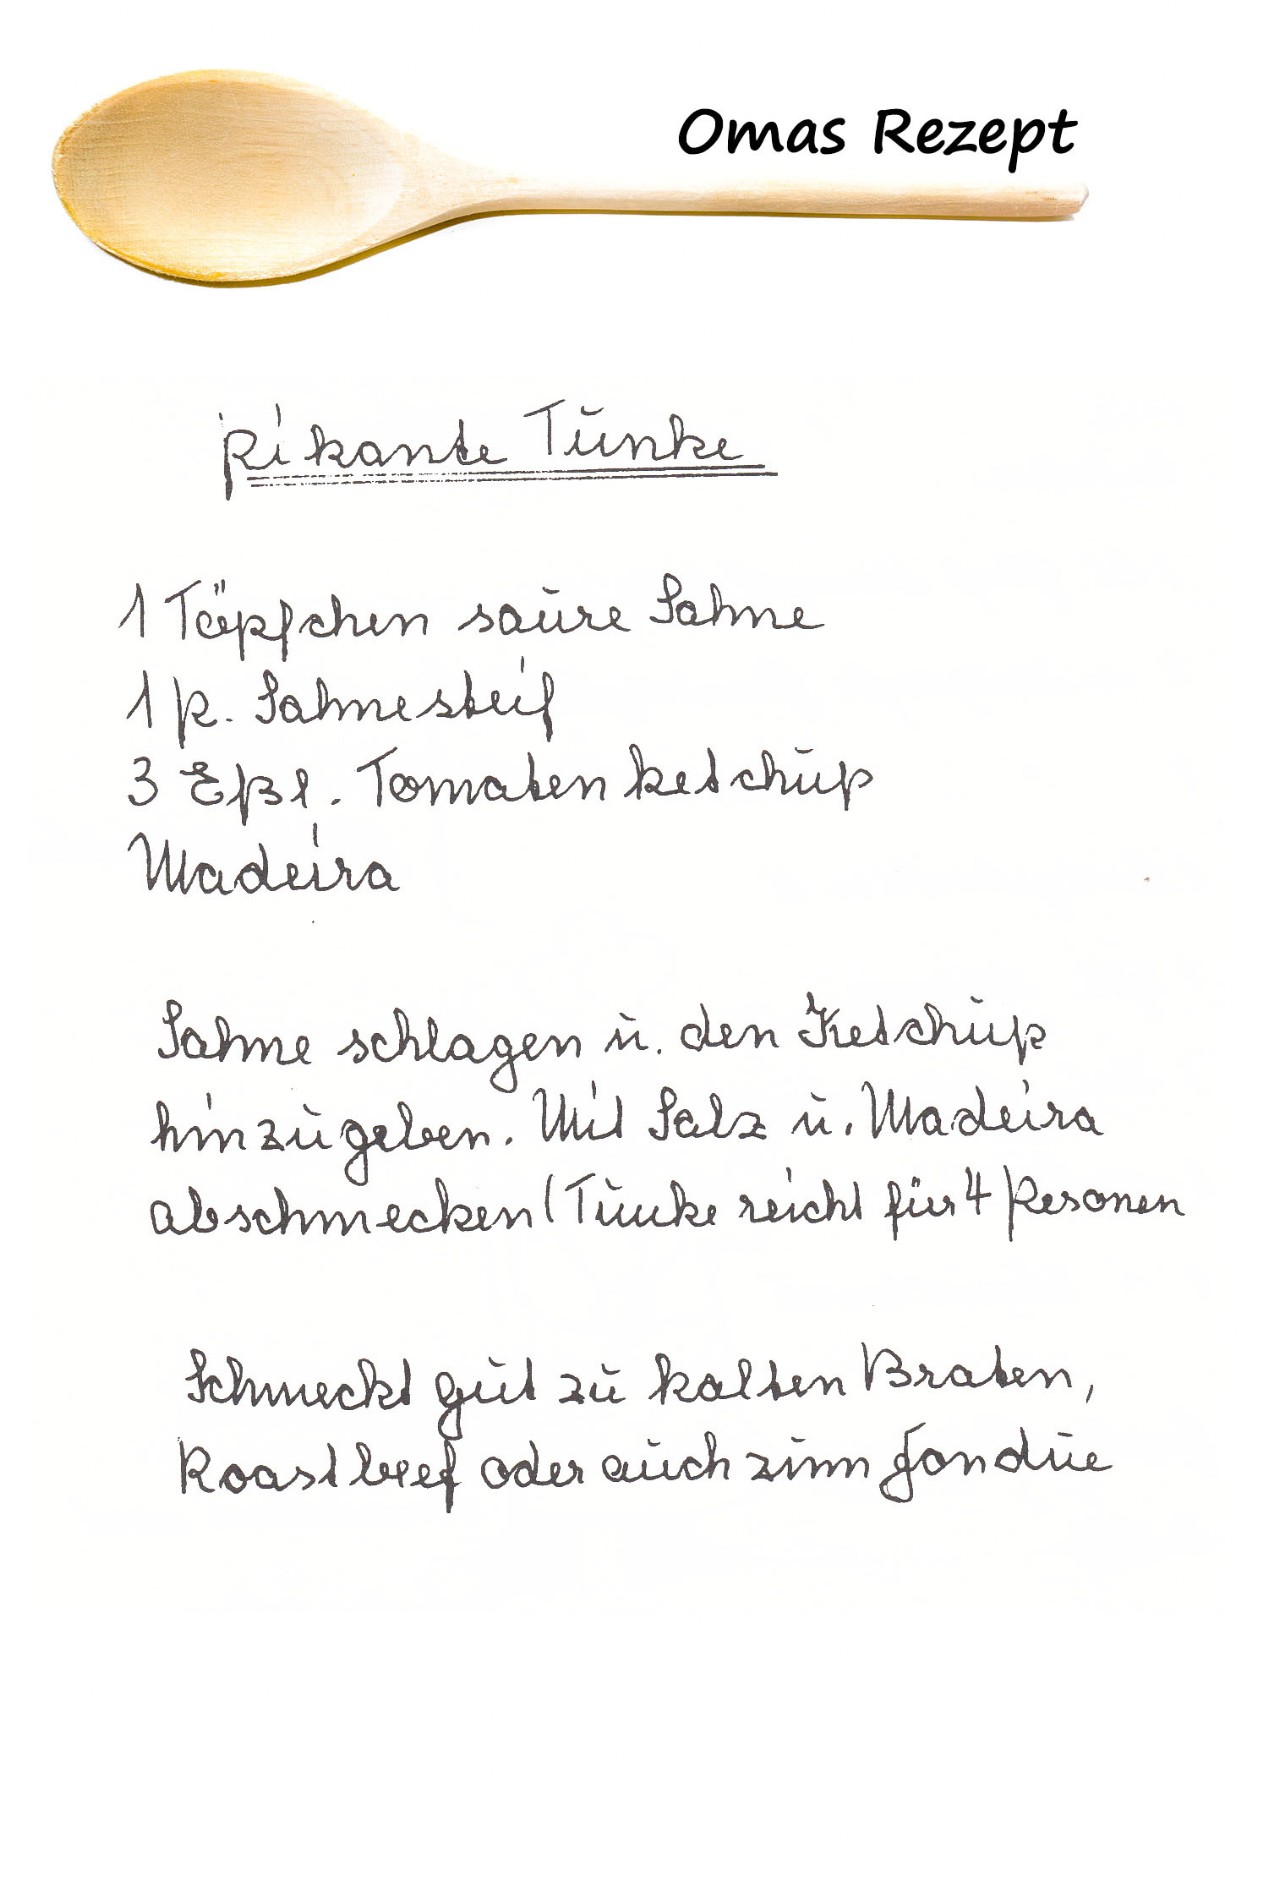 Omas Rezept
pikante Tunke
1 Töpfchen saure Sahne
1 P. Sahnesteif
3 Eßl. Tomatenketchup
Madeira
Sahne schlagen u. den Ketchup
hinzugeben. Mit Salz u. Madeira
abschmecken (Tunke reicht für 4 Personen
Schmeckt gut zu kalten Braten,
Roastbeef oder auch zum Fondue